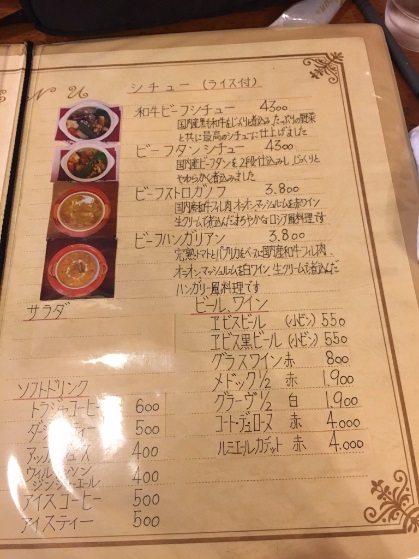 NU
シチュー (ライス付)
和牛ビーフシチュー 4300
国内産黒毛和牛をじっくり煮込み、たっぷりの野菜
と共に最高のシチューに仕上げました
ビーフタンシチュー 4300
国内産ビーフタンを2段仕込みし、じっくりと
やわらかく煮込みました
ビーフストロガノフ 3.800
国内産和牛フィレ肉、オニオン、マッシュルームを赤ワイン
生クリームで煮込んだまろやかなロシア風料理です
ビーフハンガリアン 3.800
完熟トマトとパプリカをベースに国内産和牛フィレ肉、
オニオン、マッシュルームを白ワイン、生クリームで煮込んだ
ハンガリー風料理です
サラダ
ビール、ワイン
ヱビスビール (小ビン) 550
ヱビス黒ビール (小ビン) 550
グラスワイン 赤 800
メドック1/2 赤 1.900
グラーヴ1/2 白 1.900
コート・デュ・ローヌ 赤 4.000
ルミエール、カデット 赤 4.000
ソフトドリンク
トラジャコーヒー 600
ティー 500
アップルジュース 400
ウィルキンソン
ジンジャーエール 400
アイスコーヒー 500
アイスティー 500